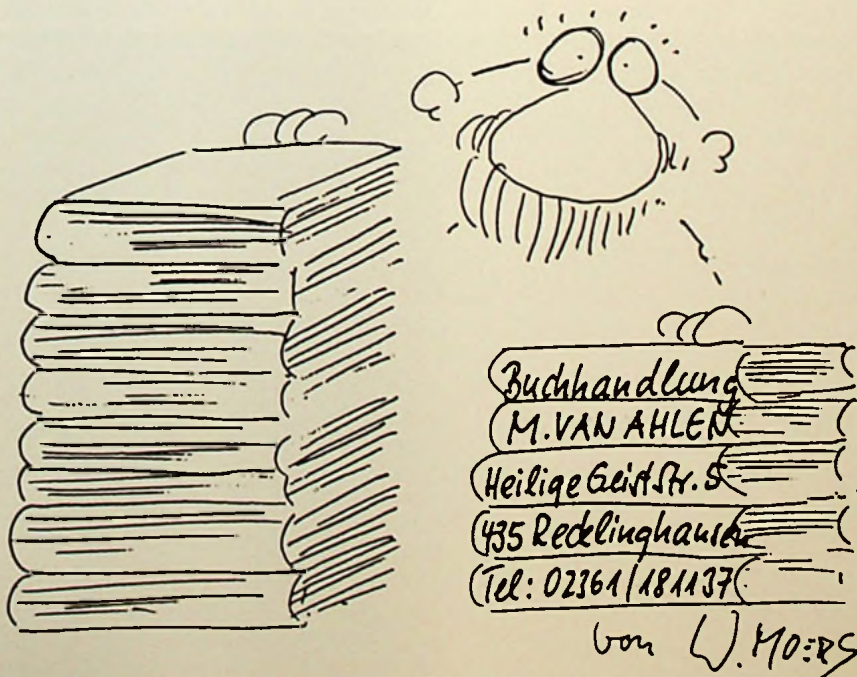 Buchhandlung
M. VAN AHLEN
Heilige Geist Str. 5
435 Recklinghausen
Tel: 02361/181137
von W. MOERS